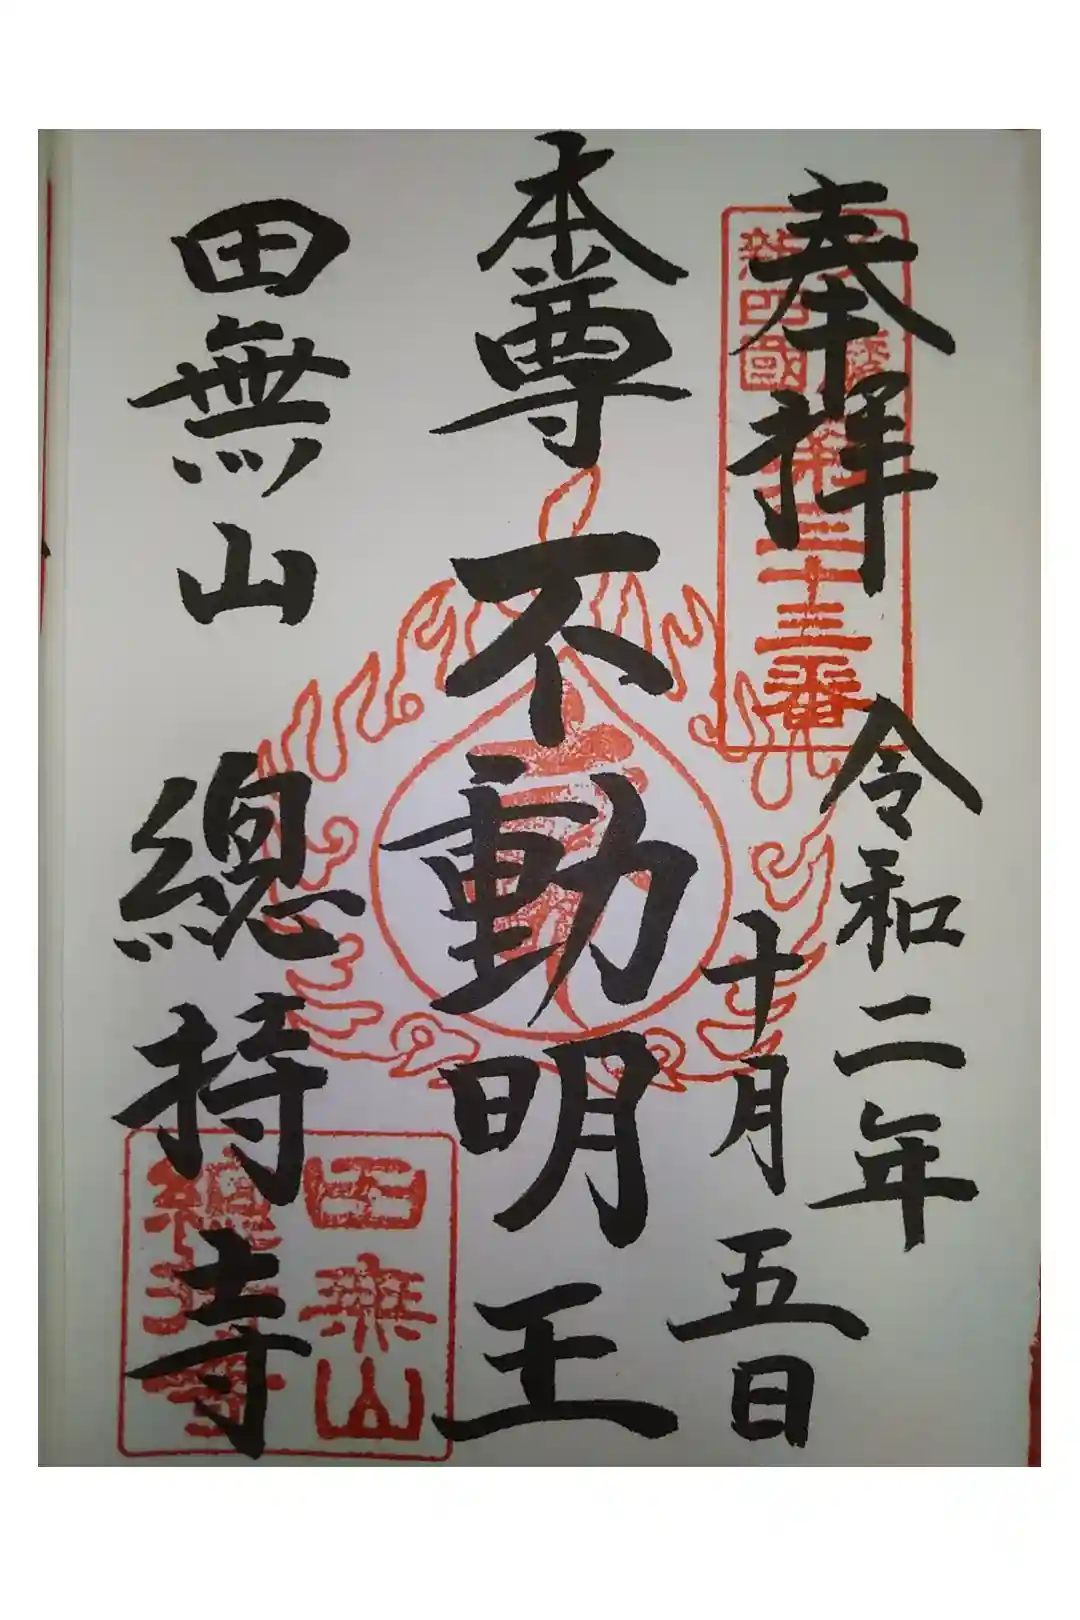 奉拝
令和二年
十月五日
本尊不動明王
田無山
總持寺
新四國
第三十三番
田無山
總持寺